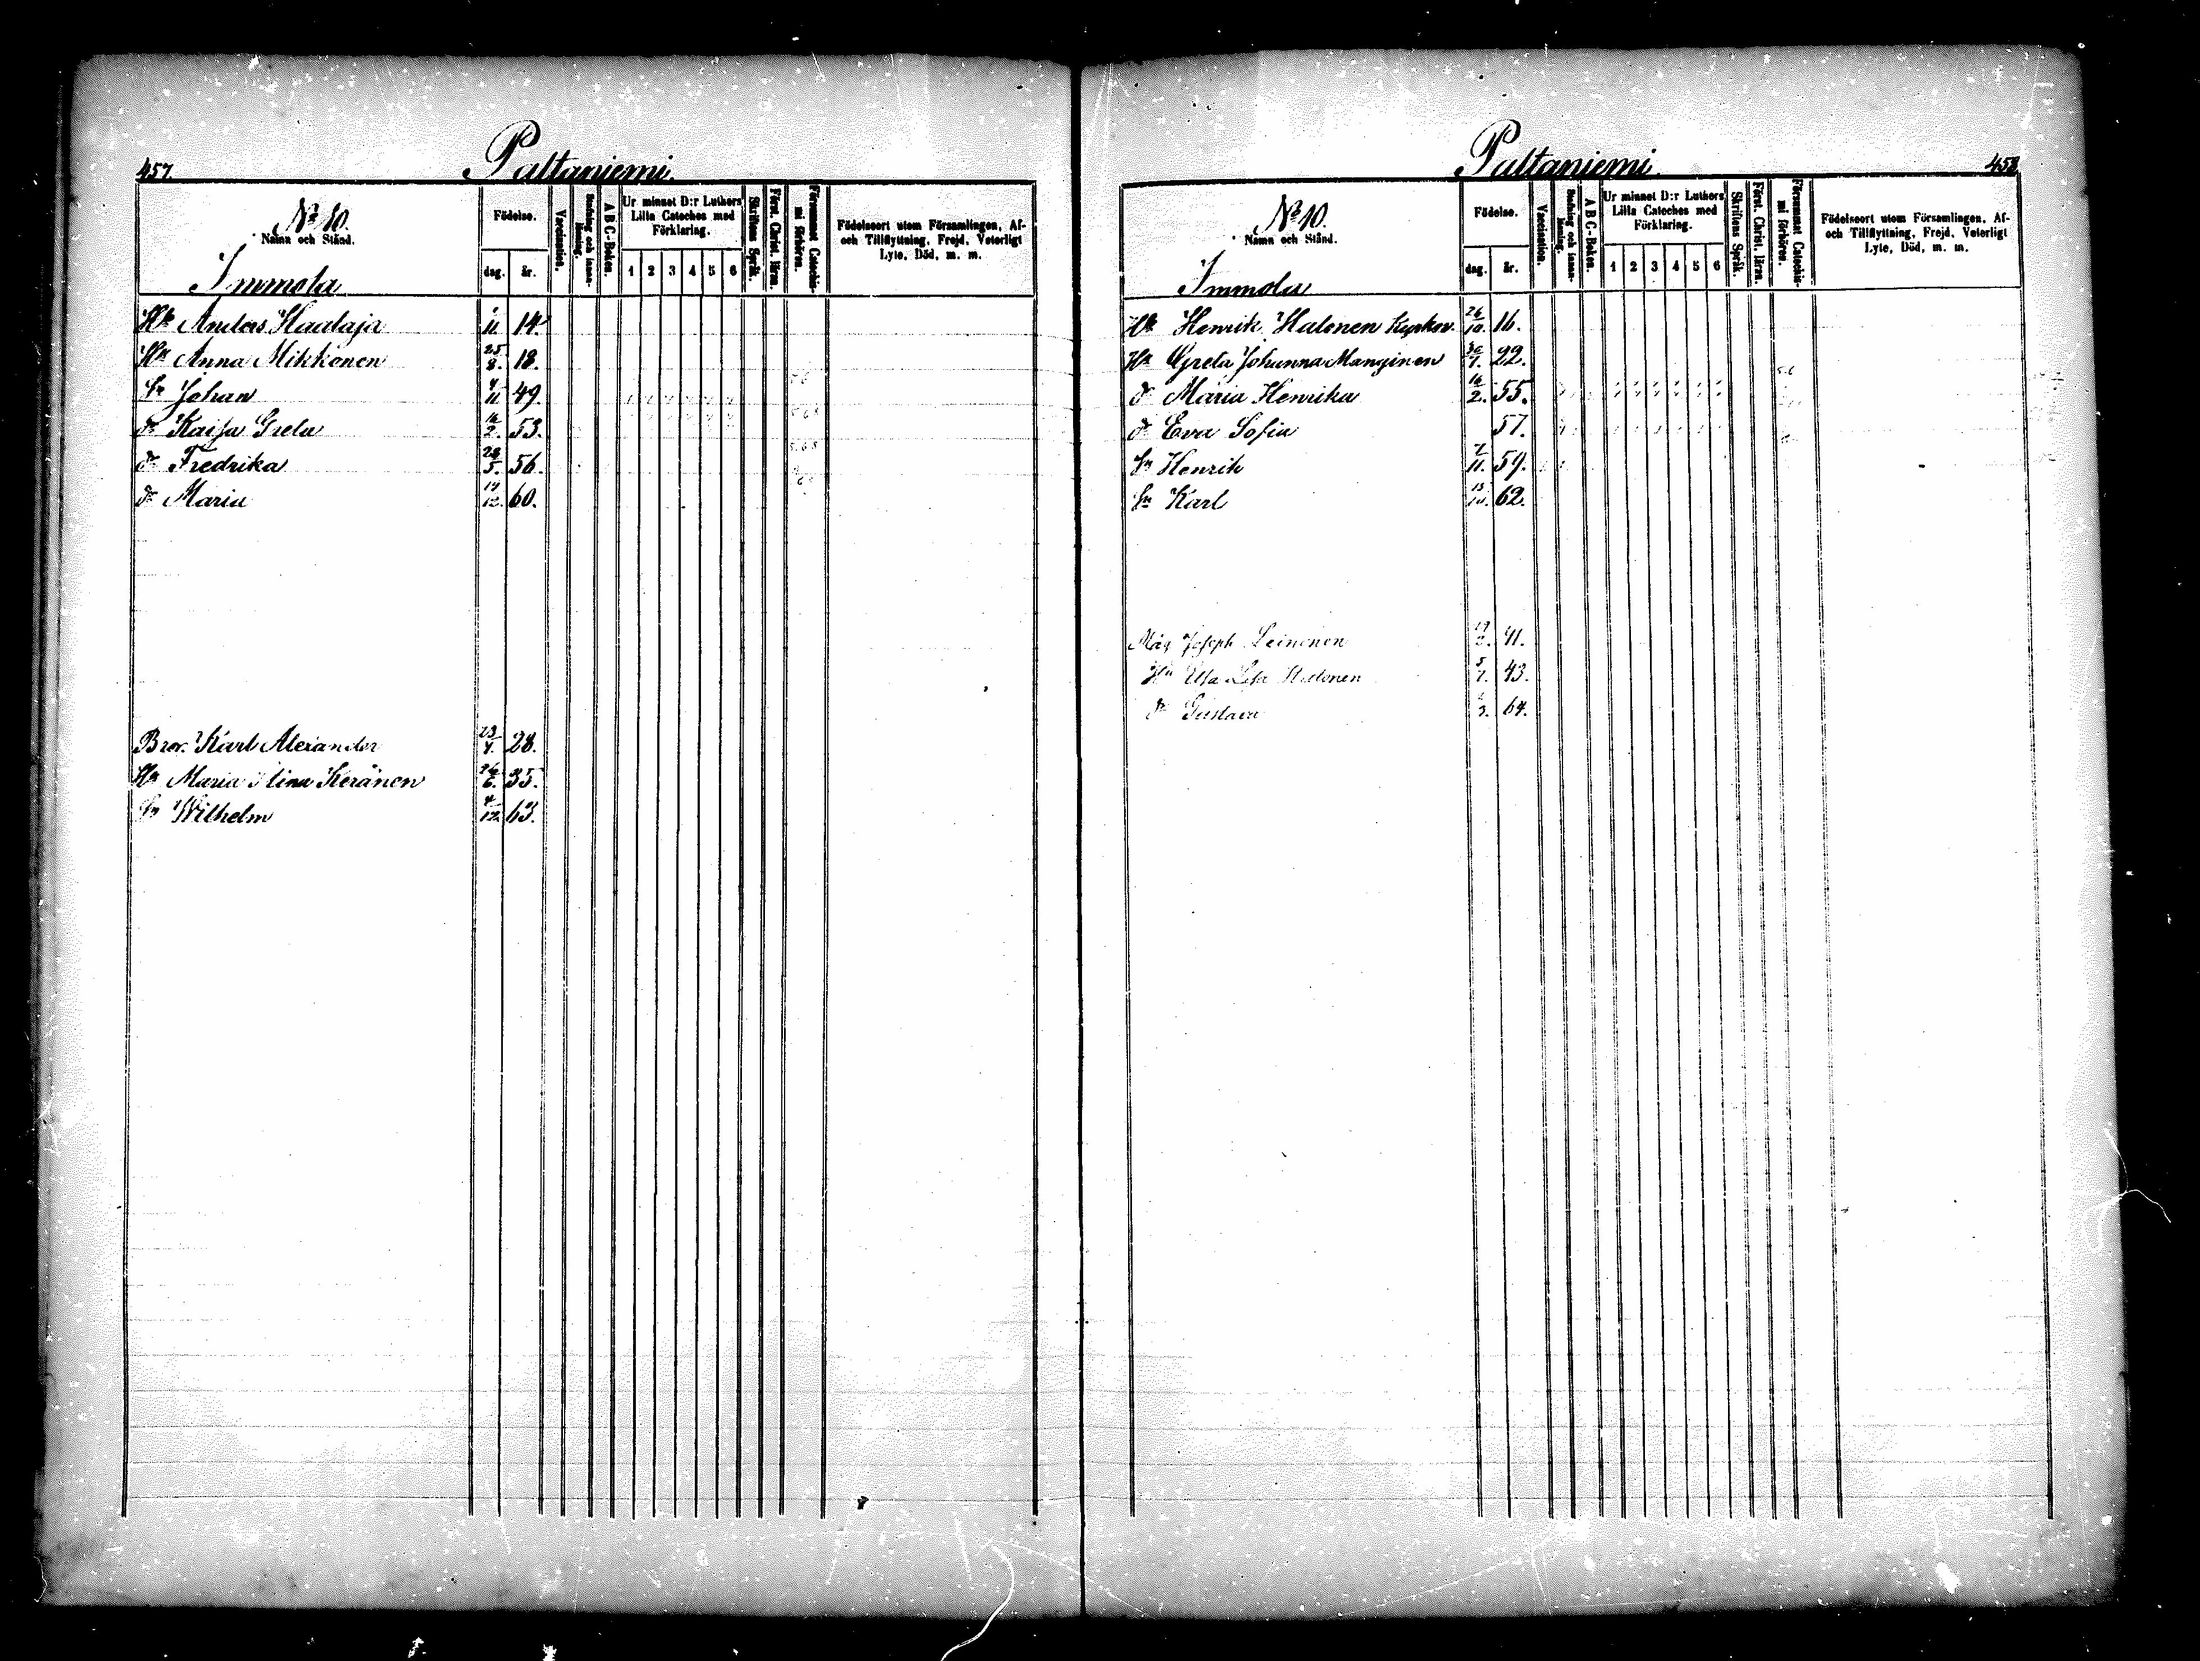 457.
Paltaniemi.
No 10.
Namn och Stånd.
Immola
Födelse.
dag. år.
Vaccination.
A B C-Boken.
Ur minnet D:r Luthers
Lilla Cateches med
Förklaring.
1 2 3 4 5 6
Skriftens Språk.
Först. Christ. läran.
Försummat Catechis-
mi förhören.
Födelseort utom Församlingen, Af-
och Tillflyttning, Frejd, Veterligt
Lyte, Död, m. m.
Anders Haataja 11. 14.
Hu Anna Mikkonen 25/8. 18.
Sn Johan 4/11 49.
dr Kaisa Greta 16/2. 53.
dr Fredrika 28/5. 56.
dr Maria 12. 60.
Bror. Karl Alexander 23/4. 28.
Hu Maria Stina Keränen 26/6. 35.
Sn Wilhelm 4/12. 63.
Paltaniemi
458.
No 10.
Namn och Stånd.
Immola
Födelse.
dag. år.
Vaccination.
A B C-Boken.
Ur minnet D:r Luthers
Lilla Cateches med
Förklaring.
1 2 3 4 5 6
Skriftens Språk.
Först. Christ. läran.
Försummat Catechis-
mi förhören.
Födelseort utom Församlingen, Af-
och Tillflyttning, Frejd, Veterligt
Lyte, Död, m. m.
Henrik Halonen 26/10. 16.
Hu Greta Johanna Manginen 30/7. 22.
dr Maria Henrika 16/2. 55.
dr Eva Sofia 57.
Sn Henrik 7/11. 59.
Sn Karl 13/10. 62.
Måg Joseph Leinonen 41.
Hu Halonen 5/7. 43.
dr Gustava 64.